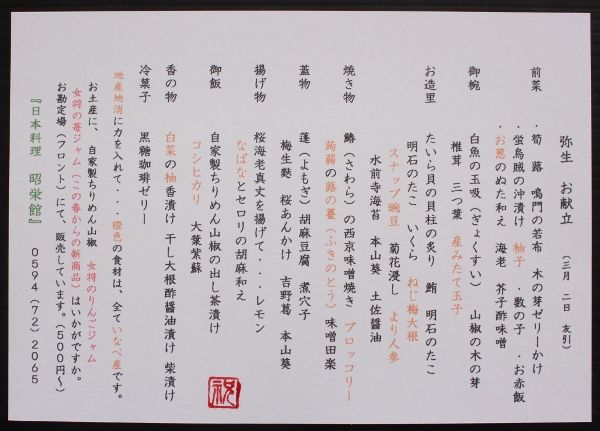 弥生 お献立 (三月 二日 友引)
前菜 ・筍 蕗 鳴門の若布 木の芽ゼリーかけ
・蛍烏賊の沖漬け 柚子 ・数の子 ・お赤飯
・お葱のぬた和え 海老 芥子酢味噌
御椀 白魚の玉吸(ぎょくすい) 山椒の木の芽
椎茸 三つ葉 産みたて玉子
お造里 たいら貝の貝柱の炙り 鮪 明石のたこ
明石のたこ いくら ねじ梅大根
スナップ豌豆 菊花浸し より人参
水前寺海苔 本山葵 土佐醤油
焼き物 鰆(さわら)の西京味噌焼き ブロッコリー
蒟蒻の蕗の薹(ふきのとう) 味噌田楽
蓋物 蓬(よもぎ)胡麻豆腐 煮穴子
梅生麩 桜あんかけ 吉野葛 本山葵
揚げ物 桜海老真丈を揚げて・・・レモン
なばなとセロリの胡麻和え
御飯 自家製ちりめん山椒の出し茶漬け
コシヒカリ 大葉紫蘇
香の物 白菜の柚香漬け 干し大根酢醤油漬け 柴漬け
冷菓子 黒糖珈琲ゼリー
祝
地産地消に力を入れて・・・橙色の食材は、全ていなべ産です。
お土産に、自家製ちりめん山椒 女将のりんごジャム
女将の苺ジャム(この春からの新商品)はいかがですか。
お勘定場(フロント)にて、販売しています。(500円~)
『日本料理 昭栄館』 0594(72)2065